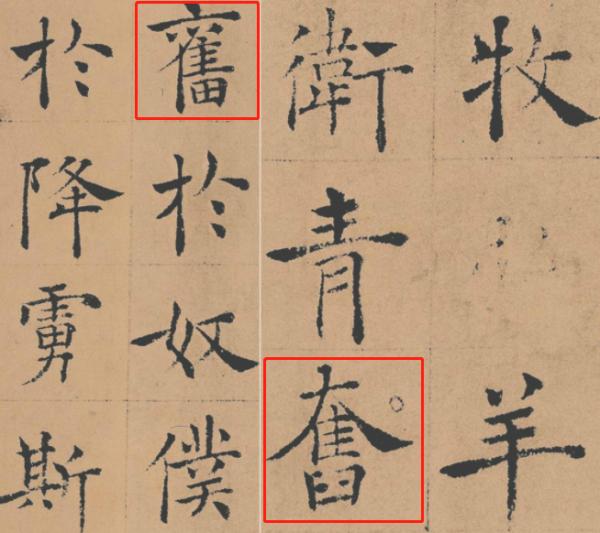 牧羊
衛青奮
奮於奴僕
於降虜斯